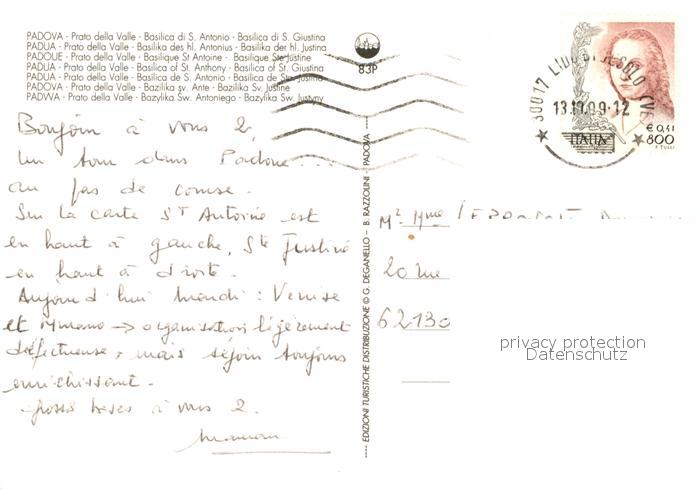 PADOVA - Prato della Valle - Basilica di S. Antonio - Basilica di S. Giustina
PADUA - Prato della Valle - Basilika des hl. Antonius - Basilika der hl. Justina
PADOUE - Prato della Valle - Basilique St Antoine - Basilique Ste Justine
PADUA - Prato della Valle - Basilica of St. Anthony - Basilica of St. Giustina
PADUA - Prato della Valle - Basilica de S. Antonio - Basilica de Sta. Justina
PADOVA - Prato della Valle - Bazilika sv. Ante - Bazilika Sv. Justine
PADWA - Prato della Valle - Bazylika Św. Antoniego - Bazylika Św. Justyny
83P
30017 LIDO DI JESOLO (VE)
13.10.99-12
€ 0,41
800
ITALIA
Bonjour à vous 2,
Un tour dans Padoue...
au pas de course.
Sur la carte St Antoine est
en haut à gauche, Ste Justine
en haut à droite.
Aujourd'hui mardi : Venise
et Murano → organisation légèrement
défectueuse, mais séjour toujours
enrichissant.
Grosses bises à vous 2.
Maman
EDIZIONI TURISTICHE DISTRIBUZIONE © G. DEGANELLO - B. RAZZOLINI - PADOVA
Mr Mme
20 rue
62130
privacy protection
Datenschutz